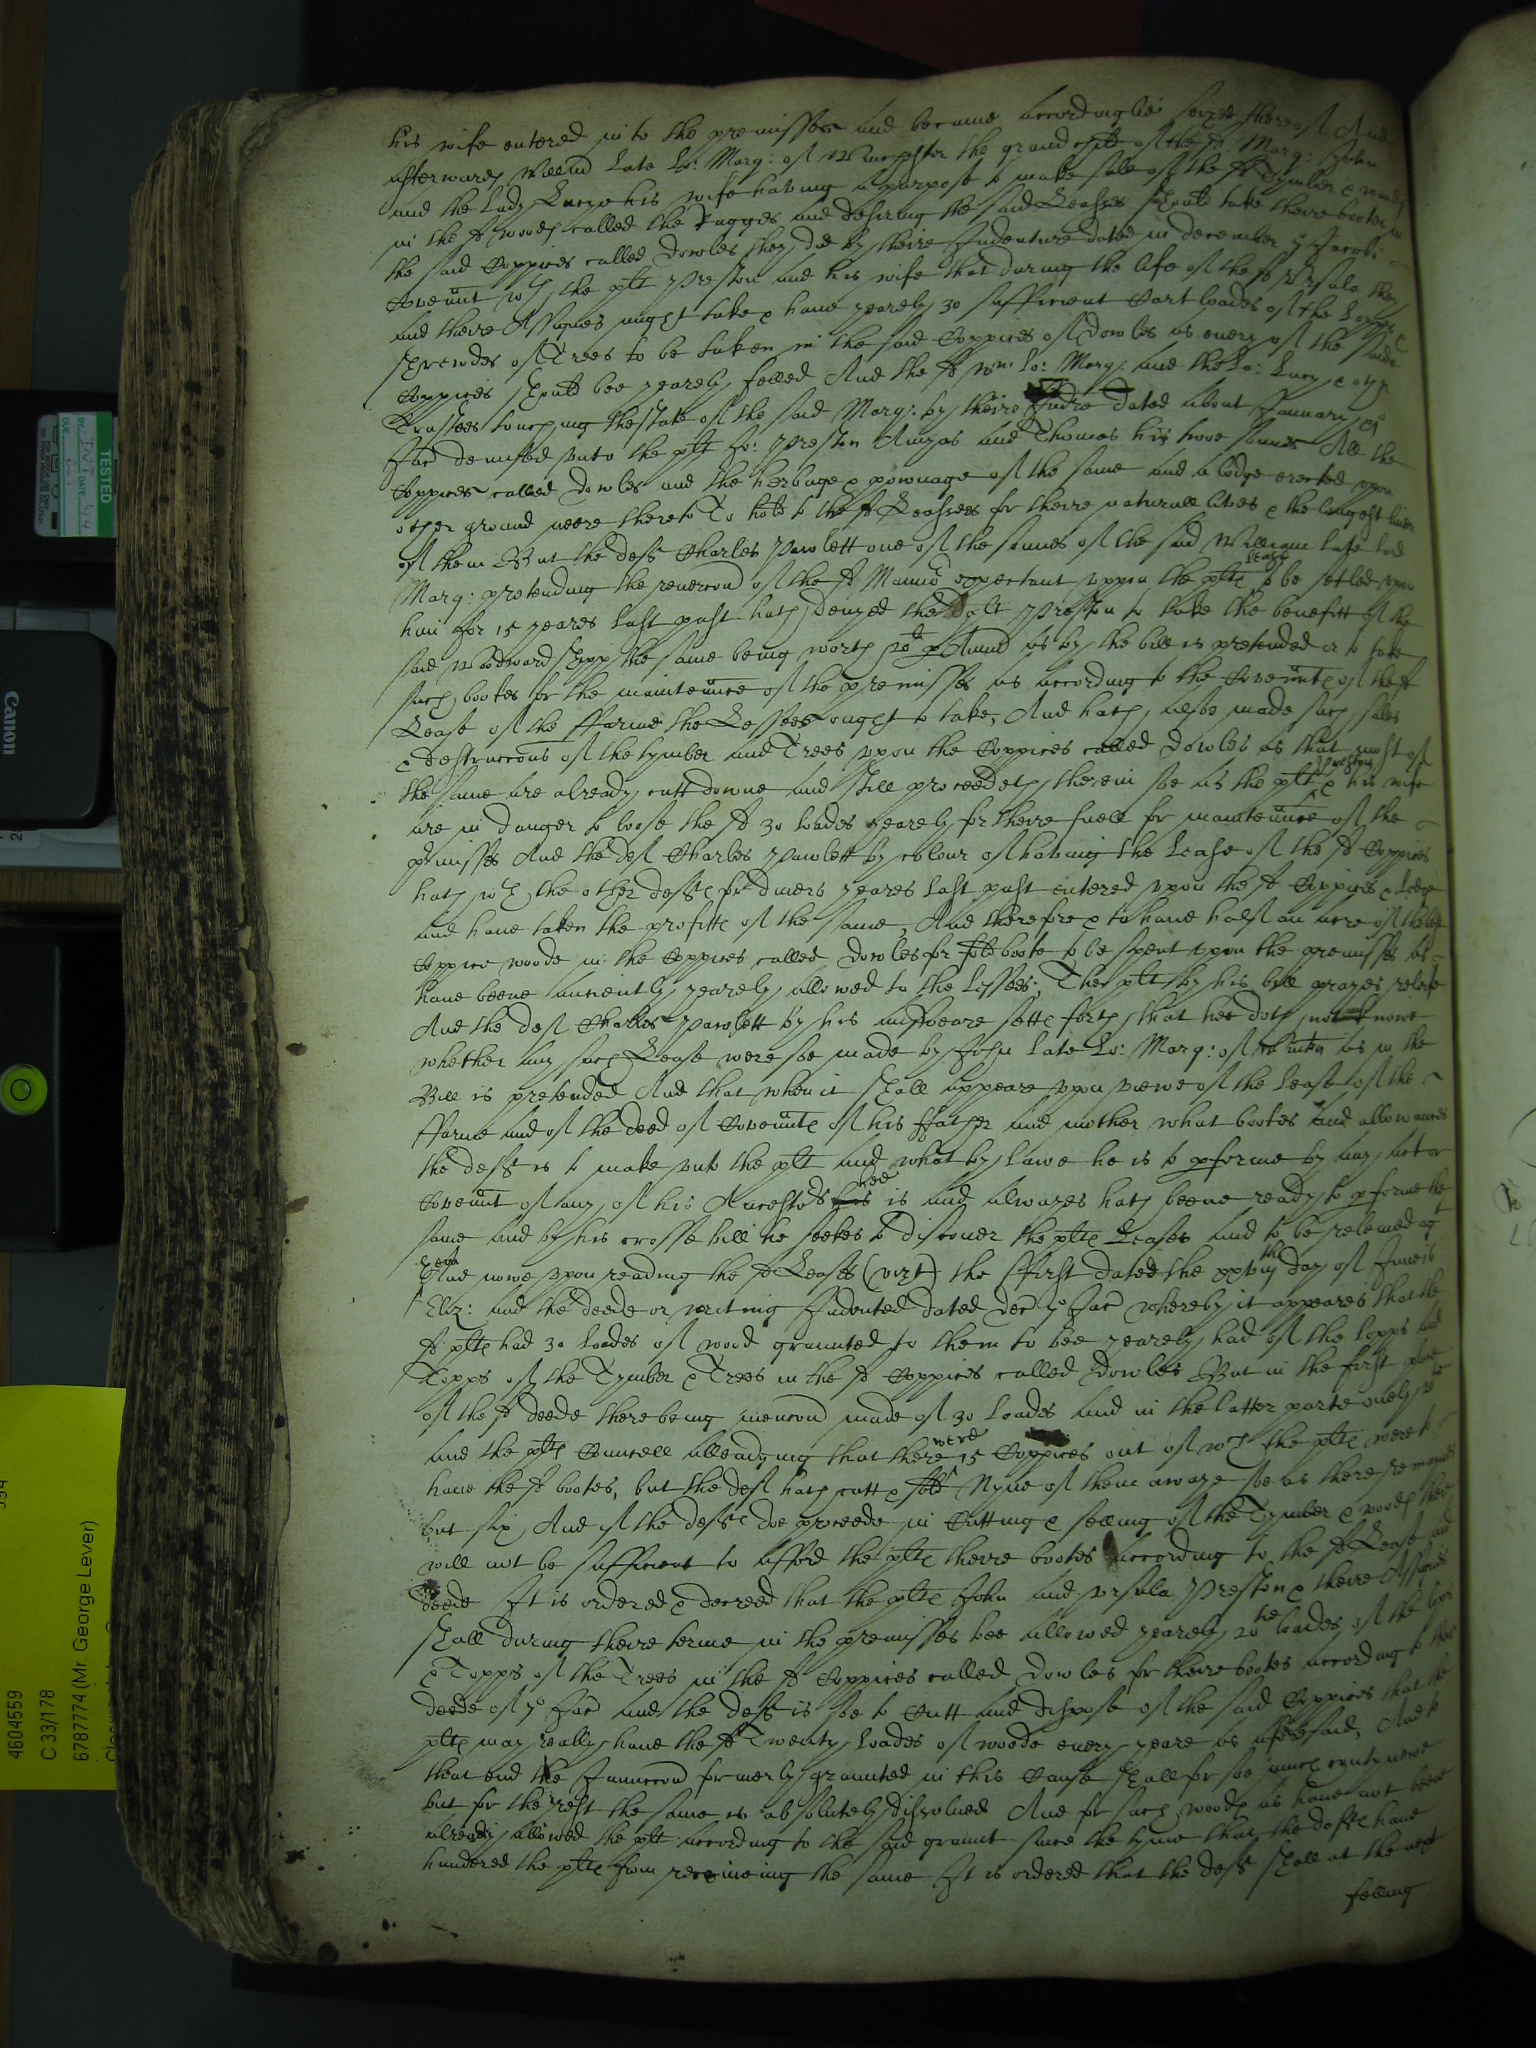 his wife entered into the premisses and became accordinglie seized thereof And
afterwards Willm̃ late Lo: Marq: of Winchester the grandchild of the sd Marq: John
and the Lady Lucye his wife having a purpose to make sale of the sd Tymber & woods
in the sd woods called the Ragges and desiring the said Leassees should take theire bootes in
the said Coppices called Dowles they did by theire Indenture dated in december 7 Jacobi
Coven̄nt wth the plt Preston and his wife that during the life of the sd Ursula they
and theire Assignes might take & have yearely 30 sufficient Cart loades of the Lopps &
shrowdes of Trees to be taken in the said Coppices of Dowles as every of the said
Coppices should bee yearely felled And the sd Wm Lo: Marq: and the La: Lucy & othr
Trustees touching thestate of the said Marq: by theire Indre dated about January
Jac demised unto the plt Jo: Preston Amyas and Thomas his twoe sonnes All the
Coppices called Dowles and the herbage & pownage of the same and a lodge erected upon
other ground neere thereto To hold to the sd Leassees for theire naturall lives & the longest liver
of them But the deft Charles Pawlett one of the sonnes of the said William late lord
Marq: pretending the revercon̄ of the sd Mannor expectant uppon the plts lease to be setled upon
him for 15 yeares last past hath denyed the plt Preston to take the benefitt of the
said Woodwardshipp the same being worth p Annū as by the bill is pretended or to take
such bootes for the mainten̄nce of the premisses as according to the Coven̄nts of the sd
Lease of the ffarme the Lessees ought to take, And hath alsoe made such sales
& destruccons of the tymber and Trees upon the Coppices called Dowles as that most of
the same are already cutt downe and still proceedeth therein soe as the plts Preston & his wife
are in danger to loose the sd 30 loades yearely for theire fuell for mainten̄nce of the
premisses And the deft Charles Pawlett by colour of having the Lease of the sd Coppices
hath wth the other defts for divers yeares last past entered upon the sd Coppices & lodge
and have taken the profitts of the same, And therefore & to have half an acre of the best
Coppice woode in the Coppices called Dowles for foldboote to be spent upon the premisses as
have beene anciently yearely allowed to the Lessees; The plt by his bill prayes releife
And the deft Charles Pawlett by his answeare setts forth that hee doth not knowe
whether any such Lease were soe made by John late Lo: Marq: of Winton as in the
Bill is pretended And that when it shall appeare upon viewe of the Lease of the
ffarme and of the deed of Coven̄nts of his ffather and mother what bootes and allowances
the deft is to make unto the plt and what by Lawe he is to pforme by any act or
Coven̄nt of any of his Ancestors hee is and alwayes hath beene ready to pforme the
same and by his crosse bill he seekes to discover the plts Leases and to be releived agt
them
And nowe upon reading the sd Leases (vizt) the ffirst dated the xxviijth day of June
Eliz: and the deede or writing Indented dated Dec 7o Jac whereby it appeares that the
sd plts had 30 loades of wood graunted to them to bee yearely had of the lopps and
Topps of the Tymber & Trees in the sd Coppices called Dowles But in the first place
of the sd deede there being mencon̄ made of 30 Loades and in the latter parte onely 20tie
and the plts Councell alleadging that there were 15 Coppices out of wch the plts were to
have the sd bootes, but the deft hath cutt & sold Nyne of them awaye soe as there remaines
but six, And if the defts doe proceede in Cutting & selling of the Tymber & woods there
will not be sufficient to afford the plts theire bootes according to the sd Lease and
deede It is ordered & decreed that the plts John and Ursula Preston & theire Assignes
shall during theire terme in the premisses bee allowed yearely 20tie loades of the lopps
& Topps of the Trees in the sd Coppices called Dowles for theire bootes according to the
deede of 7o Jac and the deft is soe to Cutt and dispose of the said Coppices that the
plts may really have the sd Twenty Loades of woode every yeare as aforesaid, And to
that end the Iniuncon̄ formerly graunted in this Cause shall for soe much contynewe
but for the rest the same is absolutely dissolved And for such woods as have not beene
already allowed the plt according to the said graunt since the tyme that the defts have
hindered the plts from receiving the same It is ordered that the deft shall at the next
felling
TESTED
Canon
4604559
C 33/178
6787774 (Mr. George Lever)